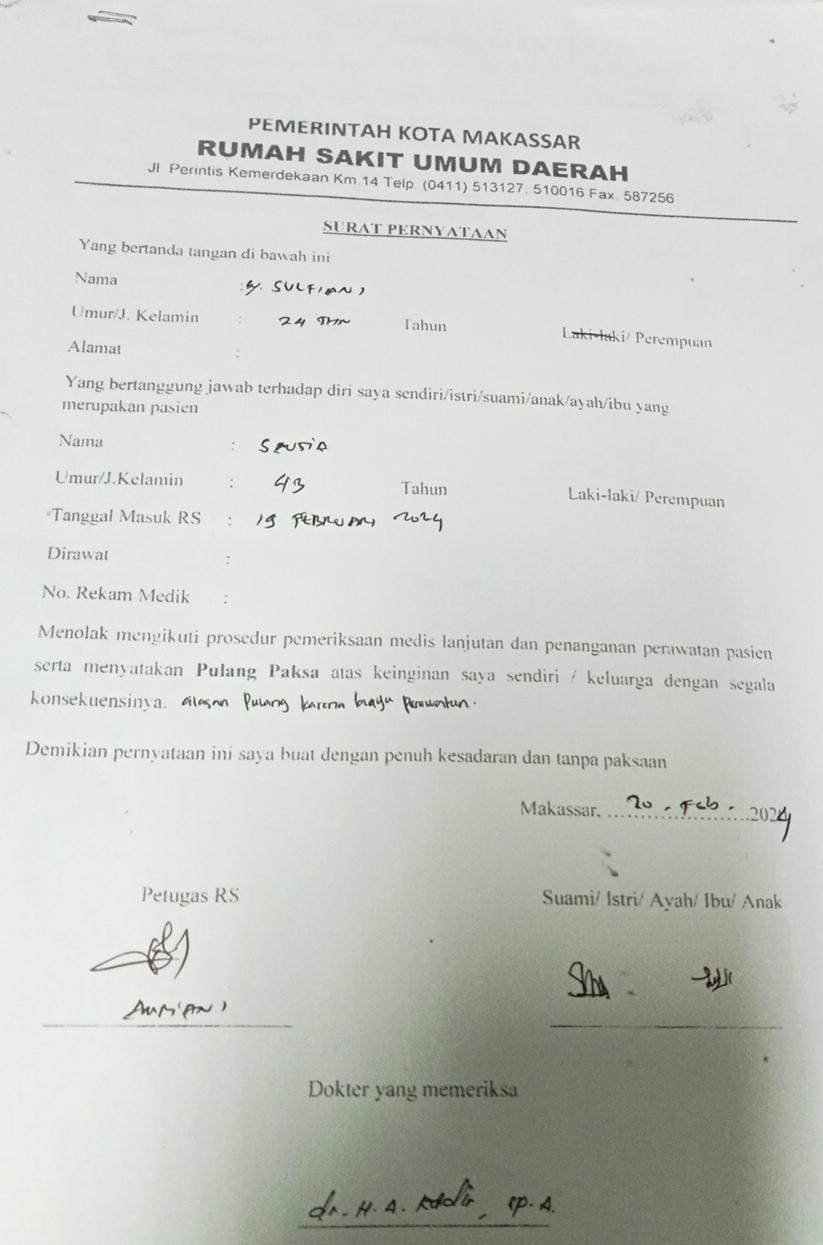 PEMERINTAH KOTA MAKASSAR
RUMAH SAKIT UMUM DAERAH
Jl. Perintis Kemerdekaan Km.14 Telp. (0411) 513127. 510016 Fax. 587256
SURAT PERNYATAAN
Yang bertanda tangan di bawah ini
Nama : SULFIANI
Umur/J. Kelamin : 24 THN Tahun Laki-laki/ Perempuan
Alamat :
Yang bertanggung jawab terhadap diri saya sendiri/istri/suami/anak/ayah/ibu yang
merupakan pasien
Nama :
Umur/J.Kelamin : 43 Tahun Laki-laki/ Perempuan
Tanggal Masuk RS : 19 FEBRUARI 2024
Dirawat :
No. Rekam Medik :
Menolak mengikuti prosedur pemeriksaan medis lanjutan dan penanganan perawatan pasien
serta menyatakan Pulang Paksa atas keinginan saya sendiri / keluarga dengan segala
konsekuensinya. alasan Pulang karena biaya perawatan.
Demikian pernyataan ini saya buat dengan penuh kesadaran dan tanpa paksaan
Makassar, 20 - Feb - 2024
Petugas RS Suami/ Istri/ Ayah/ Ibu/ Anak
Dokter yang memeriksa
dr. H. A. Kadir, Sp. A.